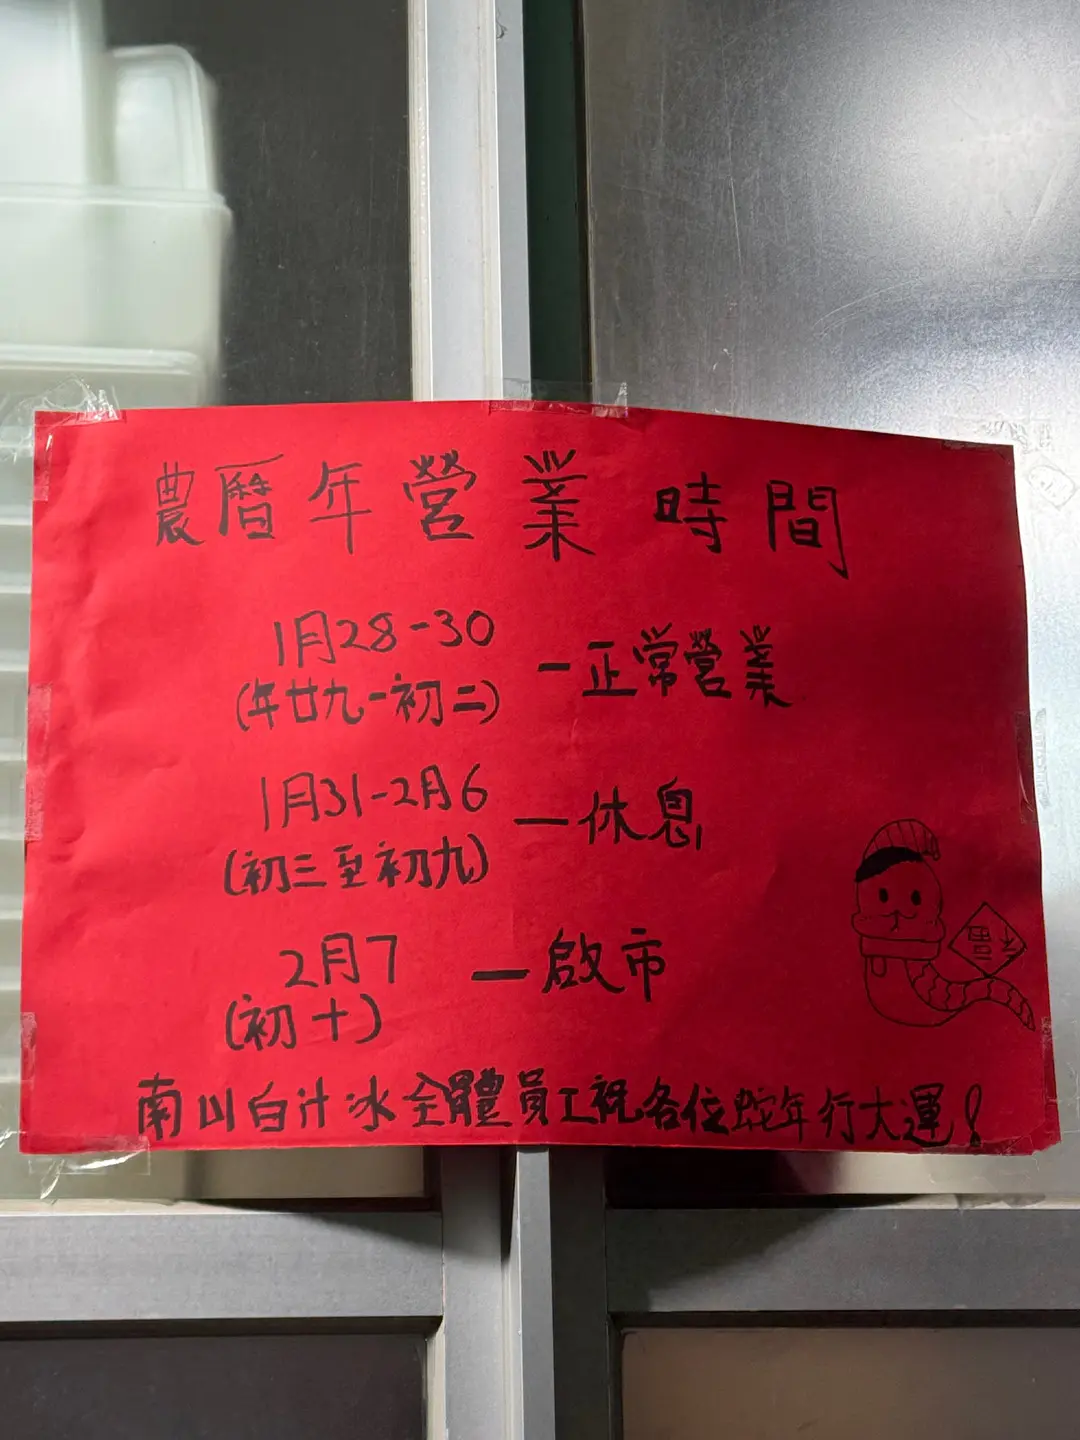 農曆年營業時間
1月28-30
(年廿九-初二)
-正常營業
1月31-2月6
(初三至初九)
-休息
2月7
(初十)
-啟市
南山白汁冰全體員工祝各位蛇年行大運!